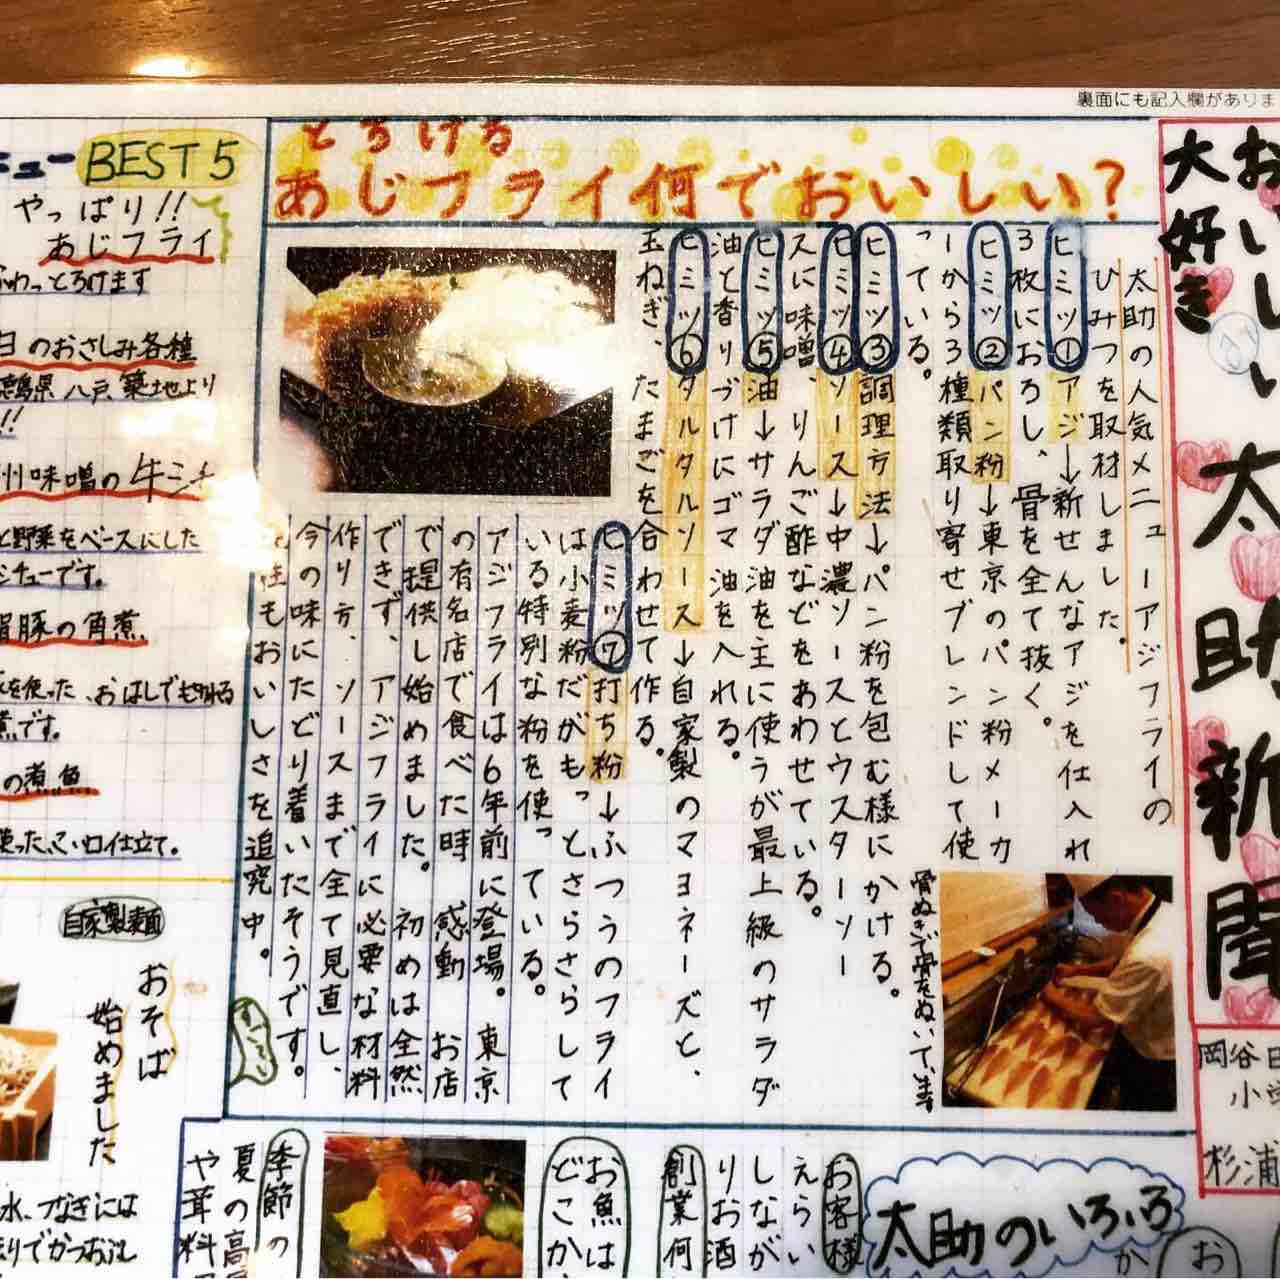 裏面にも記入欄がありま
おいしい
大好き
太助新聞
岡谷田
小学
杉浦
とろける
あじフライ何でおいしい？
太助の人気メニューアジフライの
ひみつを取材しました。
ヒミツ①アジ→新せんなアジを仕入れ
3枚におろし、骨を全て抜く。
ヒミツ②パン粉→東京のパン粉メーカ
ーから3種類取り寄せブレンドして使
っている。
ヒミツ③調理方法→パン粉を包む様にかける。
ヒミツ④ソース→中濃ソースとウスターソー
スに味噌、りんご酢などをあわせている。
ヒミツ⑤油→サラダ油を主に使うが最上級のサラダ
油と香りづけにゴマ油を入れる。
ヒミツ⑥タルタルソース→自家製のマヨネーズと、
玉ねぎ、たまごを合わせて作る。
ヒミツ⑦打ち粉→ふつうのフライ
は小麦粉だがもっとさらさらして
いる特別な粉を使っている。
アジフライは6年前に登場。東京
の有名店で食べた時感動　お店
で提供し始めました。初めは全然
できず、アジフライに必要な材料
作り方、ソースまで全て見直し、
今の味にたどり着いたそうです。
もおいしさを追究中。
すごい
骨ぬきで骨をぬいています
ニューBEST5
やっぱり!!
あじフライ
ふわっとろけます
日のおさしみ各種
徳島県 八戸、築地より
!!
州味噌の牛ミチ
と野菜をベースにした
シチューです。
豚の角煮
を使った、おはしでも切れる
煮です。
の煮魚
使ったこい口仕立て。
自家製麺
おそば
始めました
水、つなぎには
でかつおぶし
太助のいろいろ
お客様
えらい
しなが
りお酒
創業何
お魚は
どこか
季節の
夏の高
や茸料